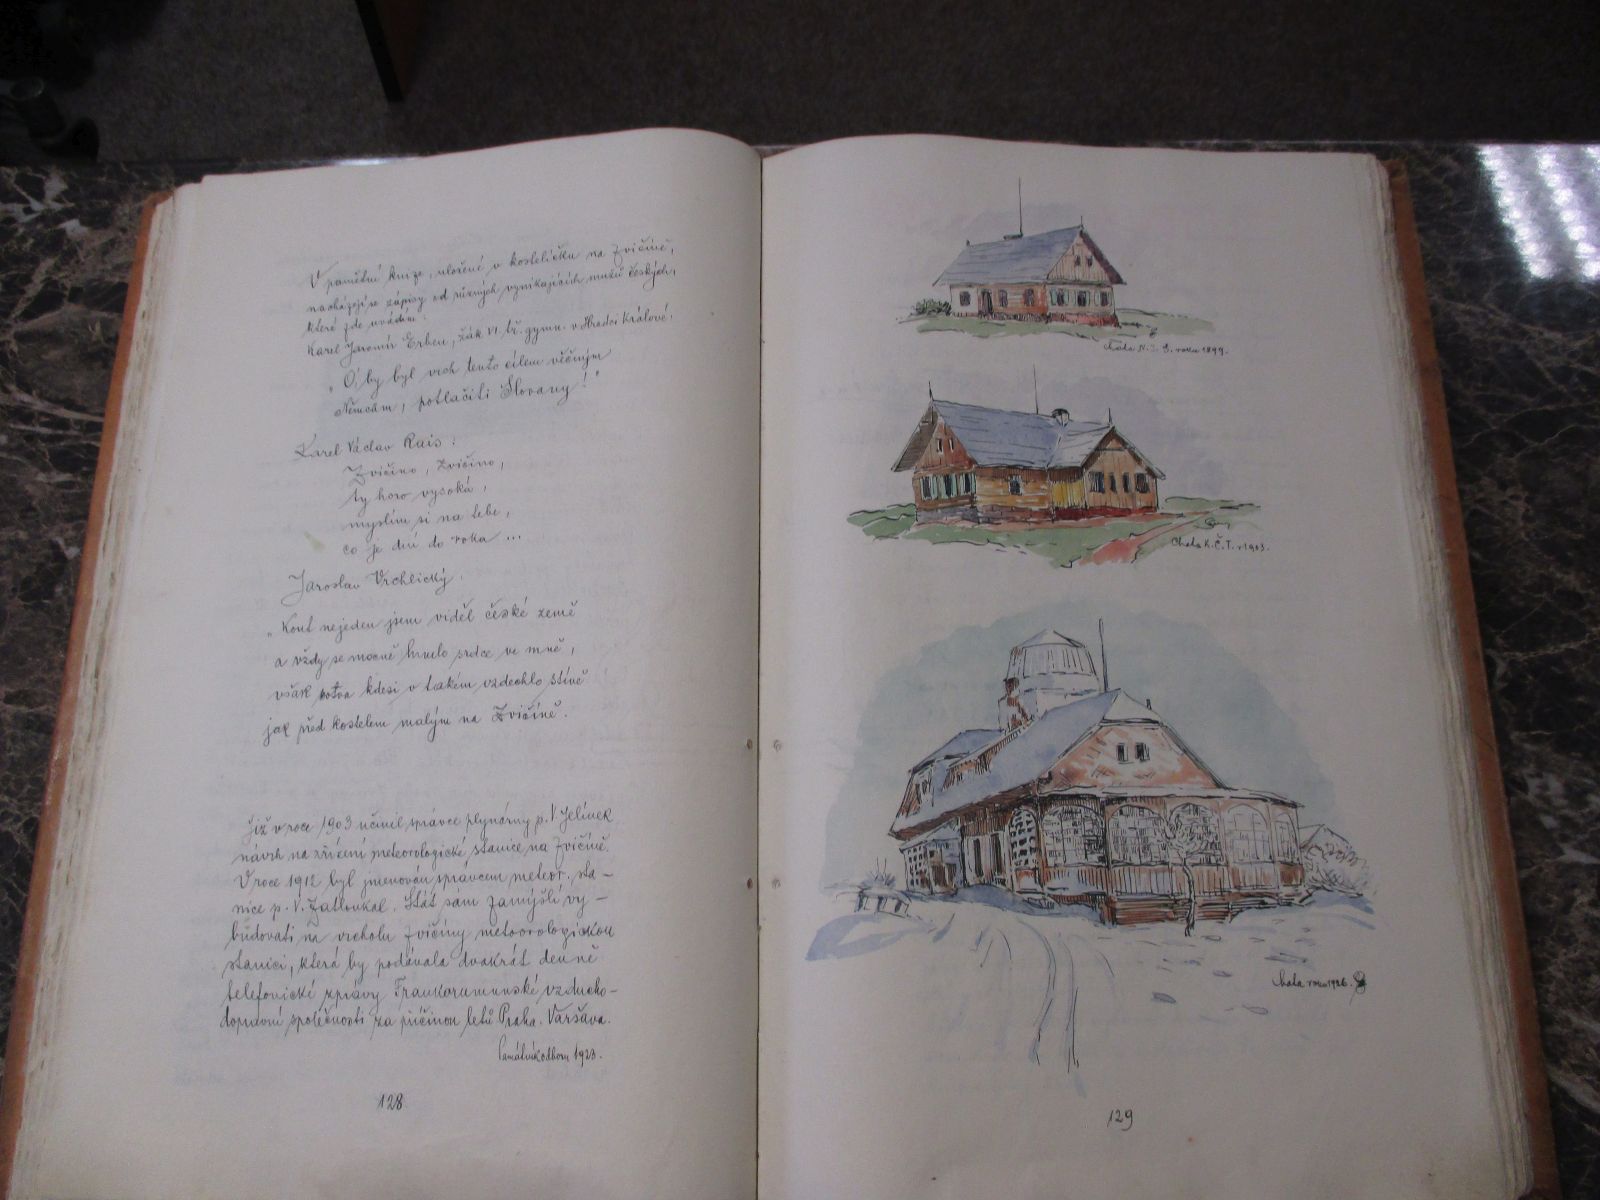 V pamětní knize, uložené v kostelíčku na Zvičíně,
nacházejí se zápisy od různých vynikajících mužů českých,
které zde uvádím:
Karel Jaromír Erben, žák VI. tř. gymn. v Hradci Králové:
„O, by byl vrch tento cílem věčným
Němcům, potlačiti Slovany!"
Karel Václav Rais:
Zvičino, Zvičino,
ty horo vysoká,
myslím si na tebe,
co je dní do roka ...
Jaroslav Vrchlický.
„Kout nejeden jsem viděl české země
a vždy se mocně hnulo srdce ve mně,
však sotva kdesi v takém vzdechlo stíně
jak před kostelem malým na Zvičíně.
Již v roce 1903 učinil správce plynárny p. V. Jelínek
návrh na zřízení meteorologické stanice na Zvičině.
V roce 1912 byl jmenován správcem meteor. sta-
nice p. V. Zatloukal. Stát sám zamýšlí vy-
budovati na vrcholu Zvičiny meteorologickou
stanici, která by podávala dvakrát denně
telefonické zprávy Frankorumunské vzducho-
dopravní společnosti za příčinou letů Praha. Varšava.
Památník odboru 1923.
128
Chata N. J. S. roku 1899.
Chata K.Č.T. r 1903.
Chata roku 1926.
129